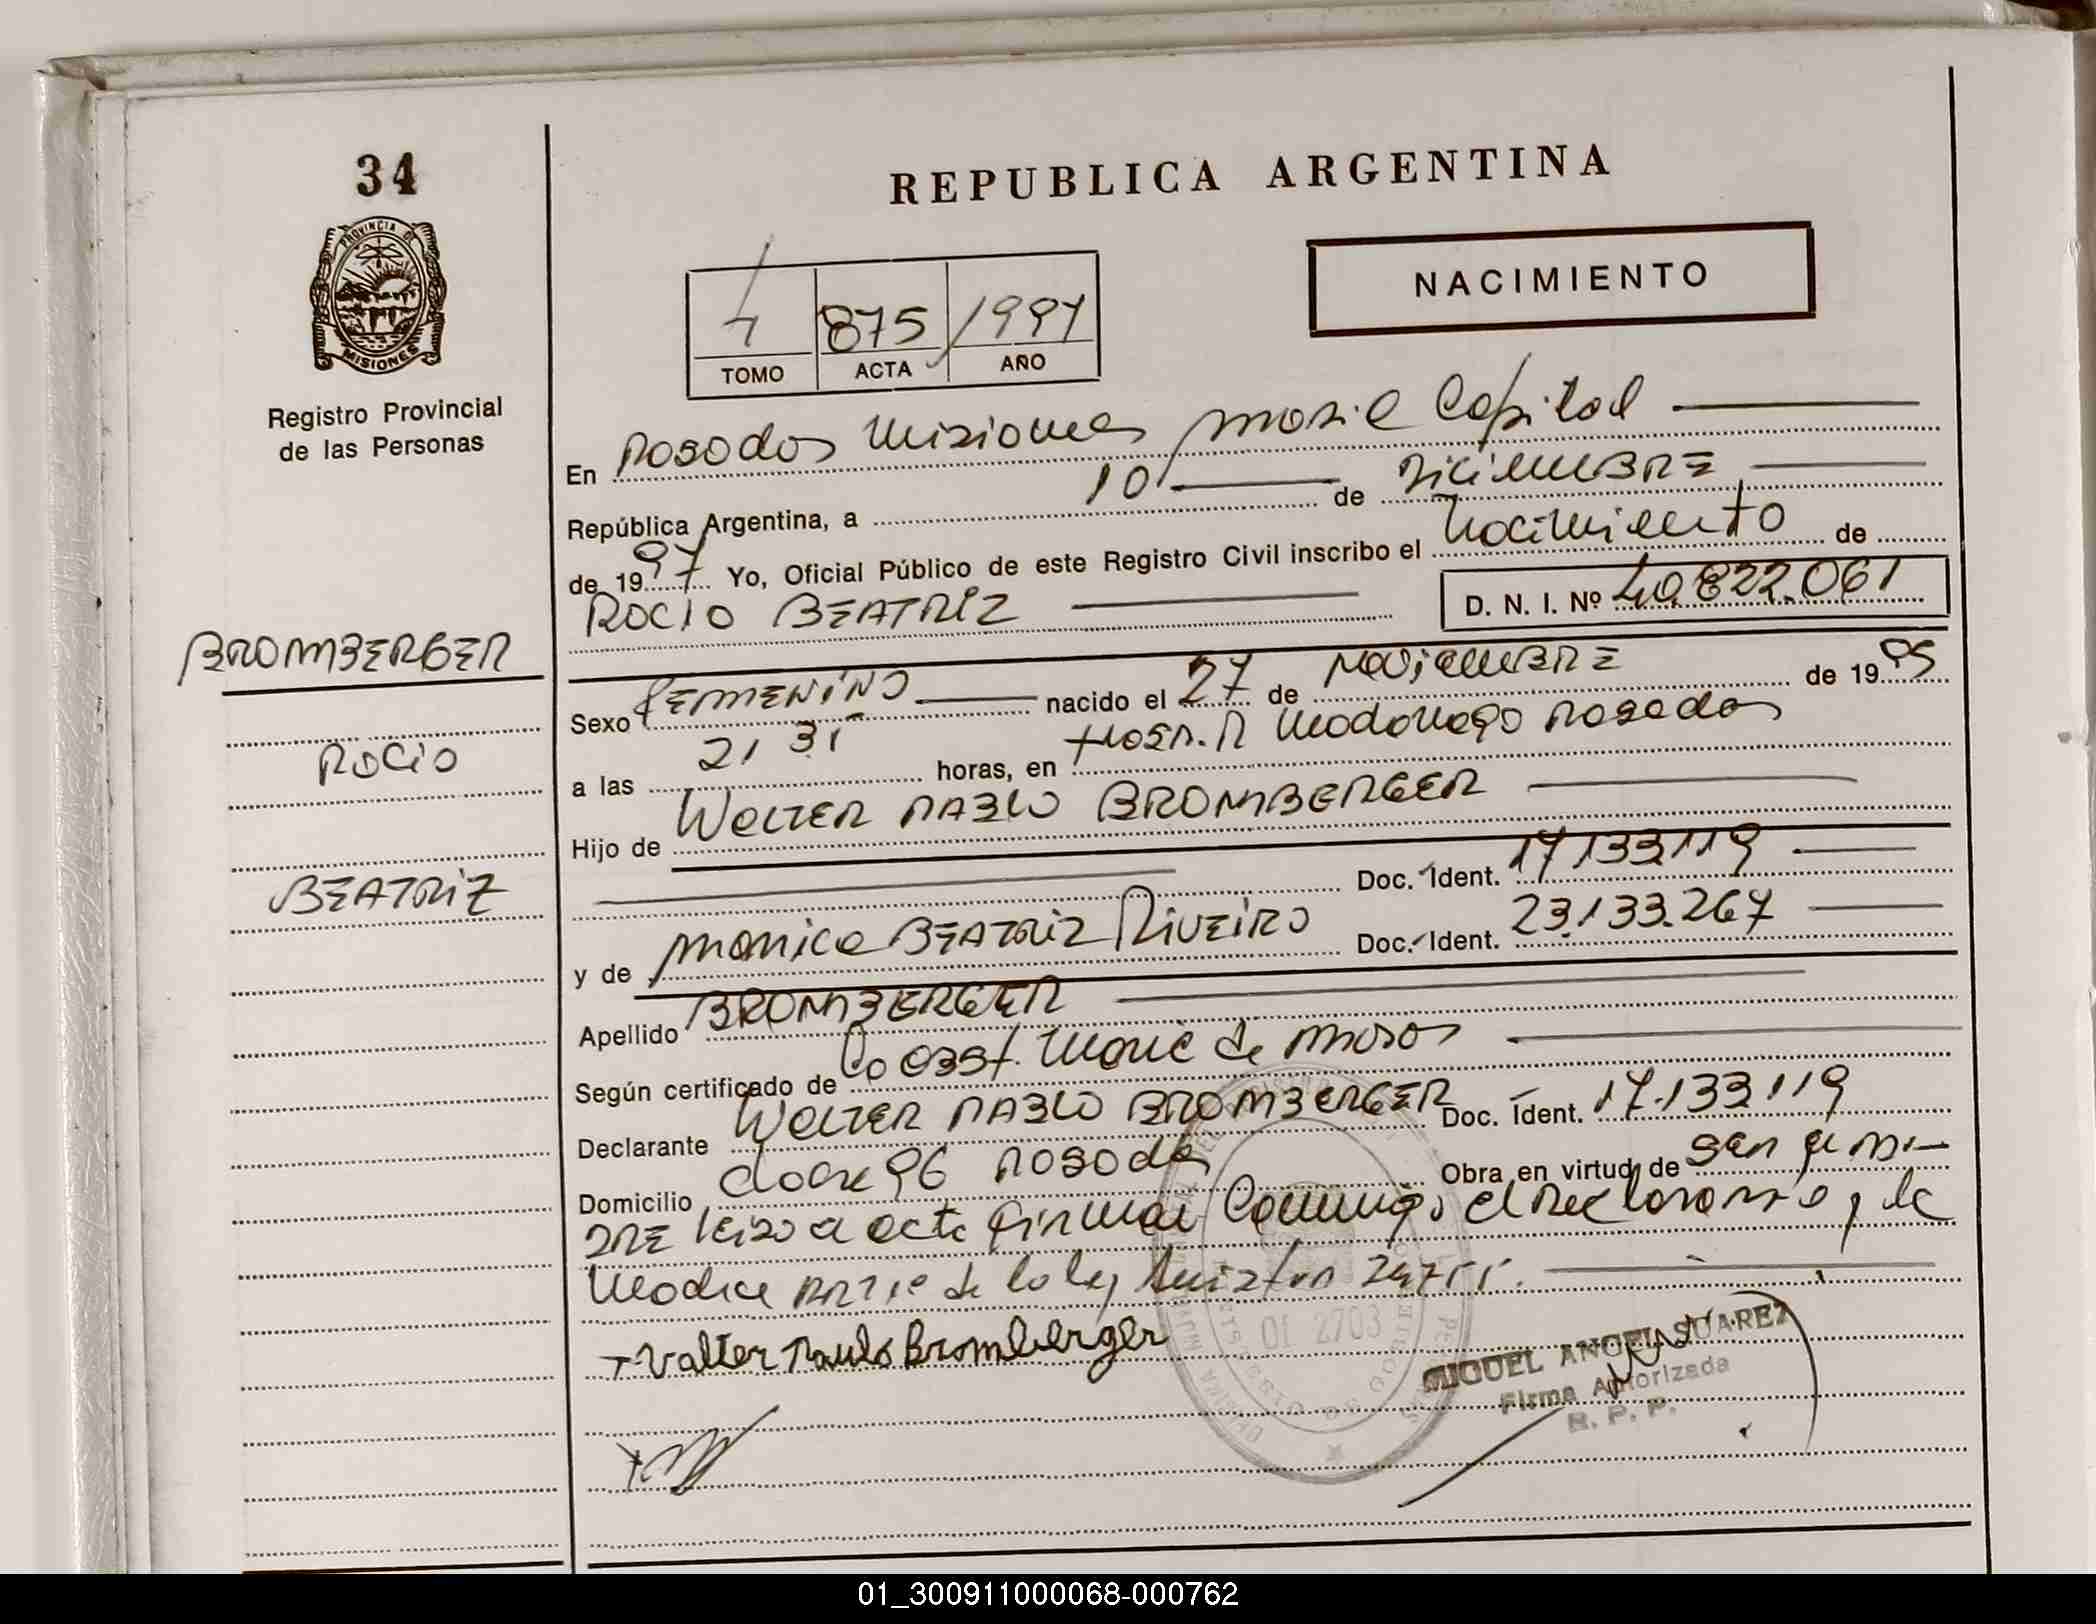 34
PROVINCIA DE
MISIONES
Registro Provincial
de las Personas
REPUBLICA ARGENTINA
NACIMIENTO
4 875 1997
TOMO ACTA AÑO
En Posadas Misiones Capital
República Argentina, a 10 de DICIEMBRE
de 1997 Yo, Oficial Público de este Registro Civil inscribo el Nacimiento de
ROCIO BEATRIZ D. N. I. Nº 40.822.061
BROMBERGER
Sexo FEMENINO nacido el 27 de NOVIEMBRE de 1995
ROCIO
a las 21 31 horas, en HOSP. R Madariaga Posadas
Hijo de WALTER PABLO BROMBERGER
Doc. Ident. 17133119
BEATRIZ
y de MONICA BEATRIZ RIVEIRO Doc. Ident. 23.133.267
Apellido BROMBERGER
Según certificado de
Declarante WALTER PABLO BROMBERGER Doc. Ident. 17.133.119
Domicilio 96 Posadas Obra en virtud de ser el pa-
DRE leida el acta firman conmigo el declarante y la
madre de la ley
Valter Paulo Bromberger
01 2703
MIGUEL ANGEL SUAREZ
Firma Autorizada
R. P. P.
01_300911000068-000762